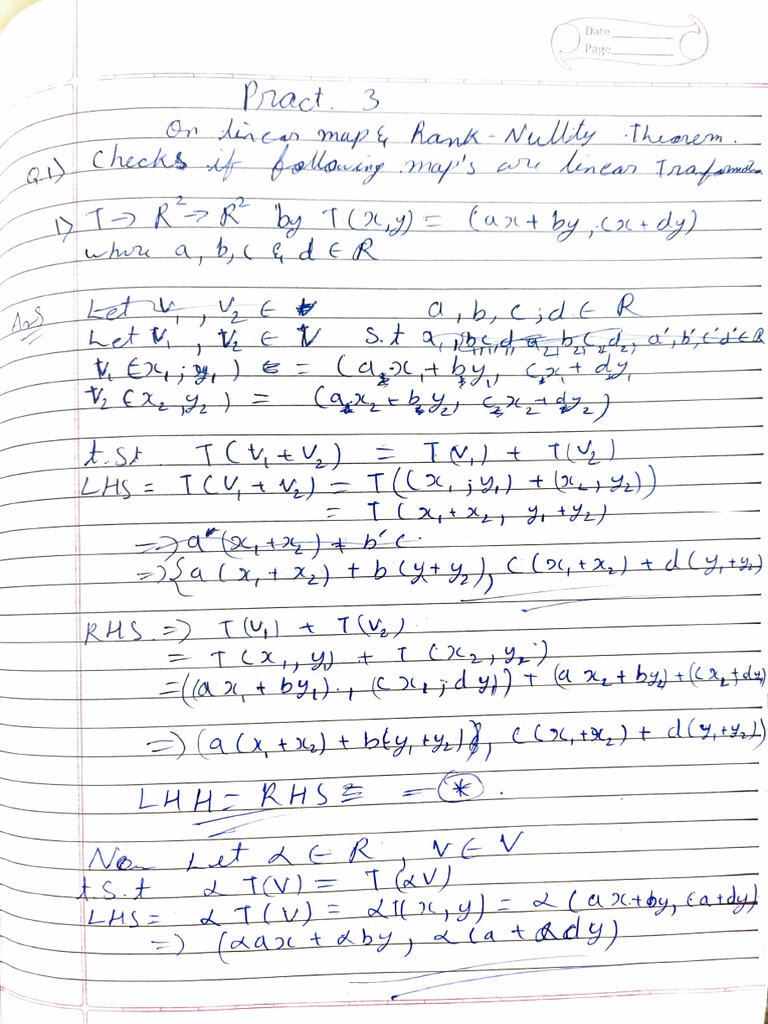 Date
Page
Pract. 3
On linear map & Rank-Nullity Theorem.
Q.1) Checks if following map's are linear Trasformation
1) T → R² → R² by T(x,y) = (ax + by, cx + dy)
where a, b, c & d ∈ R
Ans Let v₁, v₂ ∈ a, b, c, d ∈ R
Let v₁, v₂ ∈ V s.t a', b', c' d' ∈ R
v₁ (x₁, y₁) = (a x₁ + by₁, cx₁ + dy₁
v₂ (x₂, y₂) = (a x₂ + b y₂, c x₂ + dy₂)
t.st. T(v₁ + v₂) = T(v₁) + T(v₂)
LHS = T(v₁ + v₂) = T((x₁, y₁) + (x₂, y₂))
= T(x₁ + x₂, y₁ + y₂)
=> a (x₁ + x₂) + b' c.
=> {a (x₁ + x₂) + b (y + y₂), c (x₁ + x₂) + d (y₁ + y₂)
RHS => T(v₁) + T(v₂)
= T(x₁, y₁) + T(x₂, y₂)
= ((a x₁ + by₁), (cx₁; dy₁)) + (a x₂ + by₂) + (cx₂ + dy)
=> (a(x₁ + x₂) + b(y₁ + y₂)), c(x₁ + x₂) + d(y₁ + y₂))
LHH = RHS = — (*).
Now Let α ∈ R, v ∈ V
t.s.t α T(V) = T(αV)
LHS = α T(V) = αT(x, y) = α (ax + by, ca + dy)
=> (αax + αby, αca + αdy)